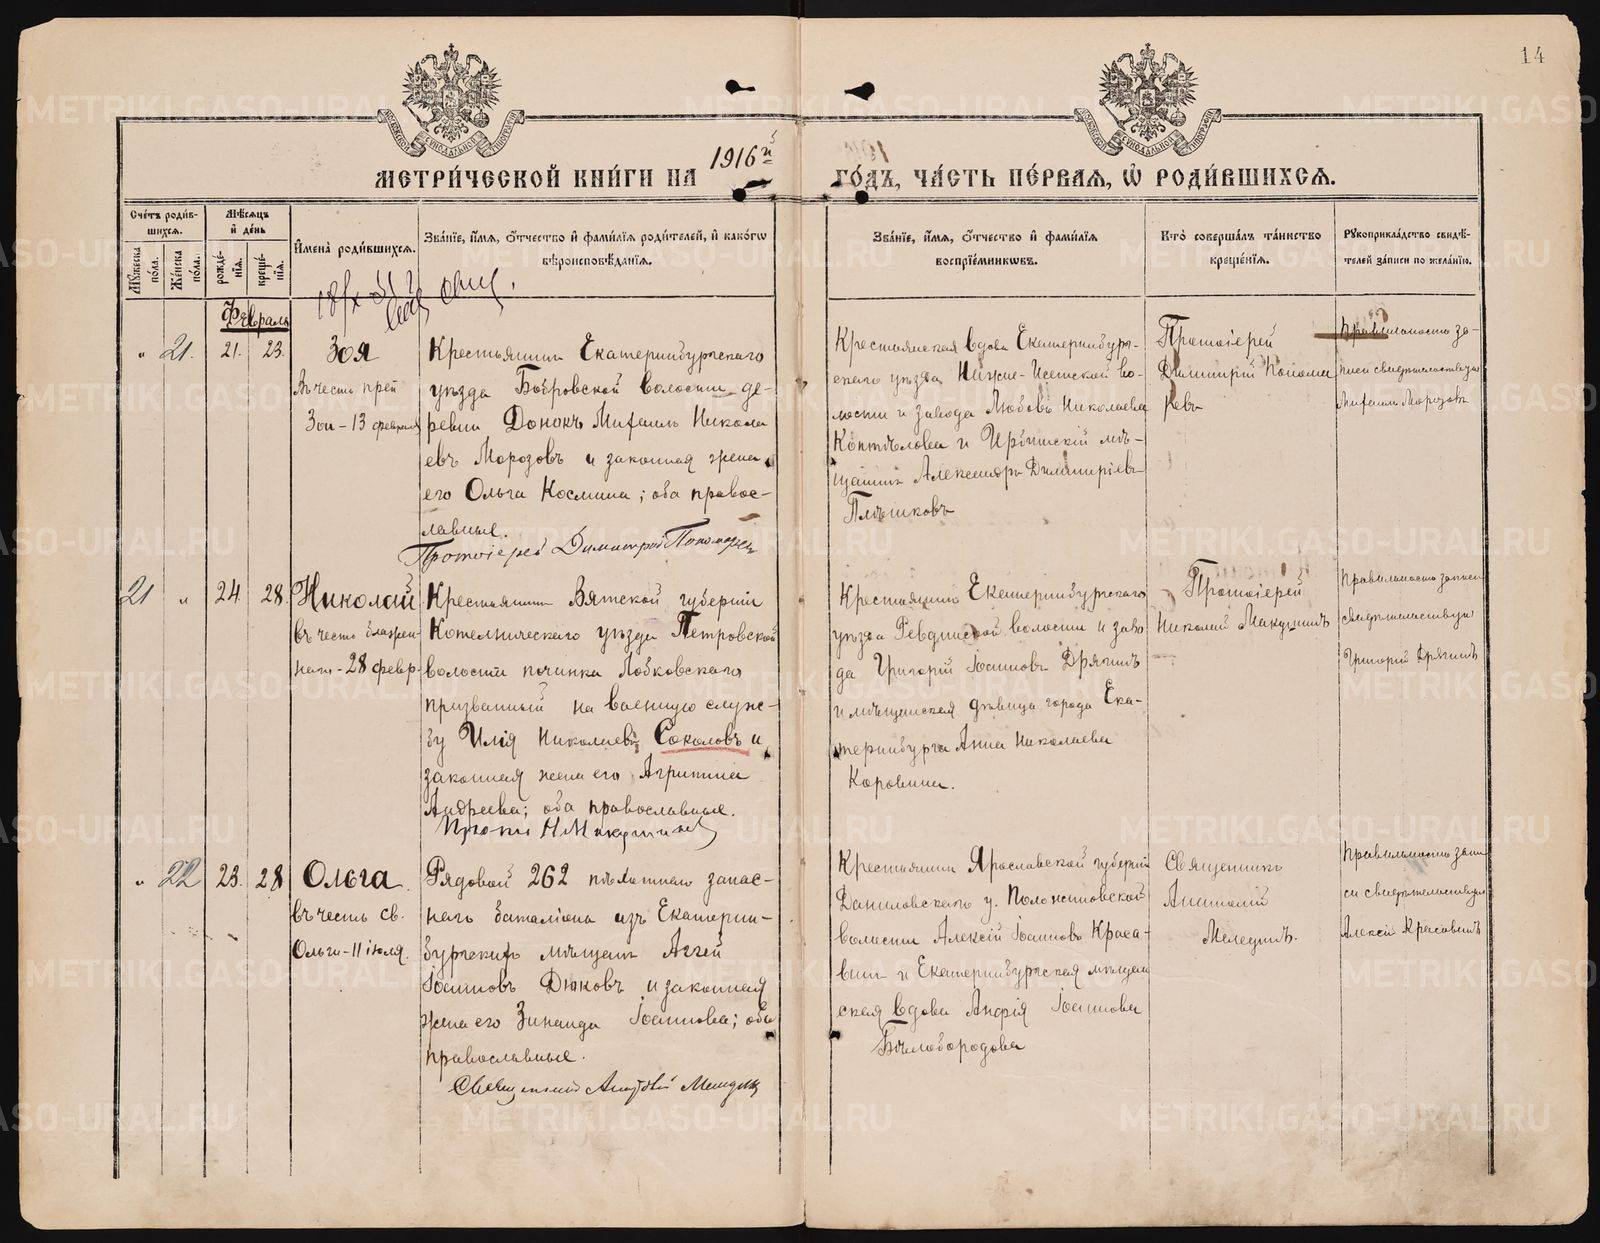 14
МЕТРИ́ЧЕСКОЙ КНИ́ГИ НА 1916й ГО́ДЪ, ЧА́СТЬ ПЕ́РВАЯ, Ѿ РОДИ́ВШИХСЯ.
Сче́тъ роди́в-
шихся.
Му́жеска по́ла.
Же́нска по́ла.
Мѣ́сяцъ
и҆ де́нь
рожде́-
нія.
креще́-
нія.
И҆мена̀ роди́вшихся.
Зва́ніе, и҆́мя, ѻ҆́тчество и҆ фами́лія роди́телей, и҆ како́гѡ
вѣроисповѣ́данія.
Зва́ніе, и҆́мя, ѻ҆́тчество и҆ фами́лія
воспріе́мниковъ.
Кто̀ соверша́лъ та́инство
креще́нія.
Рꙋкоприкла́дство свидѣ́-
телей за́писи по жела́нію.
Февраль
" 21. 21. 23.
Зоя
Въ честь прей
Зои – 13 февраля
Крестьянин Екатеринбургскаго
уѣзда Бобровской волости де-
ревни Михаилъ Никола
евъ Морозовъ и законная жена
его Ольга Космина; оба правос-
лавные.
Протоіерей Димитрій Пономарев
Крестьянская вдова Екатеринбург-
скаго уѣзда Нижне-Исетской во-
лости и завода Любовь Николаева
Коптѣлова и Ирбитскій мѣ-
щанинъ Александръ Димитріевъ
Плѣшковъ
Протоіерей
Димитрій Понома
ревъ
Правильность за-
писи свидѣтельствую
Михаилъ Морозовъ
21 " 24. 28.
Николай
въ честь блажен-
наго – 28 февр.
Крестьянин Вятской губерніи
Котельническаго уѣзда Петровской
волости починка Лобковскаго
призванный на военную служ-
бу Илія Николаевъ Соколовъ и
законная жена его Агриппина
Андреева; оба православные.
Протоі Н Микушинъ
Крестьянинъ Екатеринбургскаго
уѣзда Ревдинской волости и заво
да Григорій Іоанновъ Дрягинъ
и мѣщанская дѣвица города Ека-
теринбурга Анна Николаева
Коровина.
Протоіерей
Николай Микушинъ
Правильность записи
свидѣтельствую
Григорій Дрягинъ
" 22 23. 28
Ольга
въ честь св.
Ольги – 11 іюля.
Рядовой 262 пѣхотнаго запас-
наго баталіона изъ Екатерин-
бургскихъ мѣщанъ Аггей
Іоанновъ Дюковъ и законная
жена его Зинаида Іоаннова; оба
православные.
Священникъ Анатолій
Крестьянин Ярославской губерніи
Даниловскаго у. волости Алексій Іоанновъ Краса-
вин и Екатеринбургская мѣщан
ская вдова Анфія Іоаннова
Бѣлобородова
Священникъ
Анатолій
Правильность запи
си свидѣтельствую
Алексій Красавинъ
METRIKI.GASO-URAL.RU